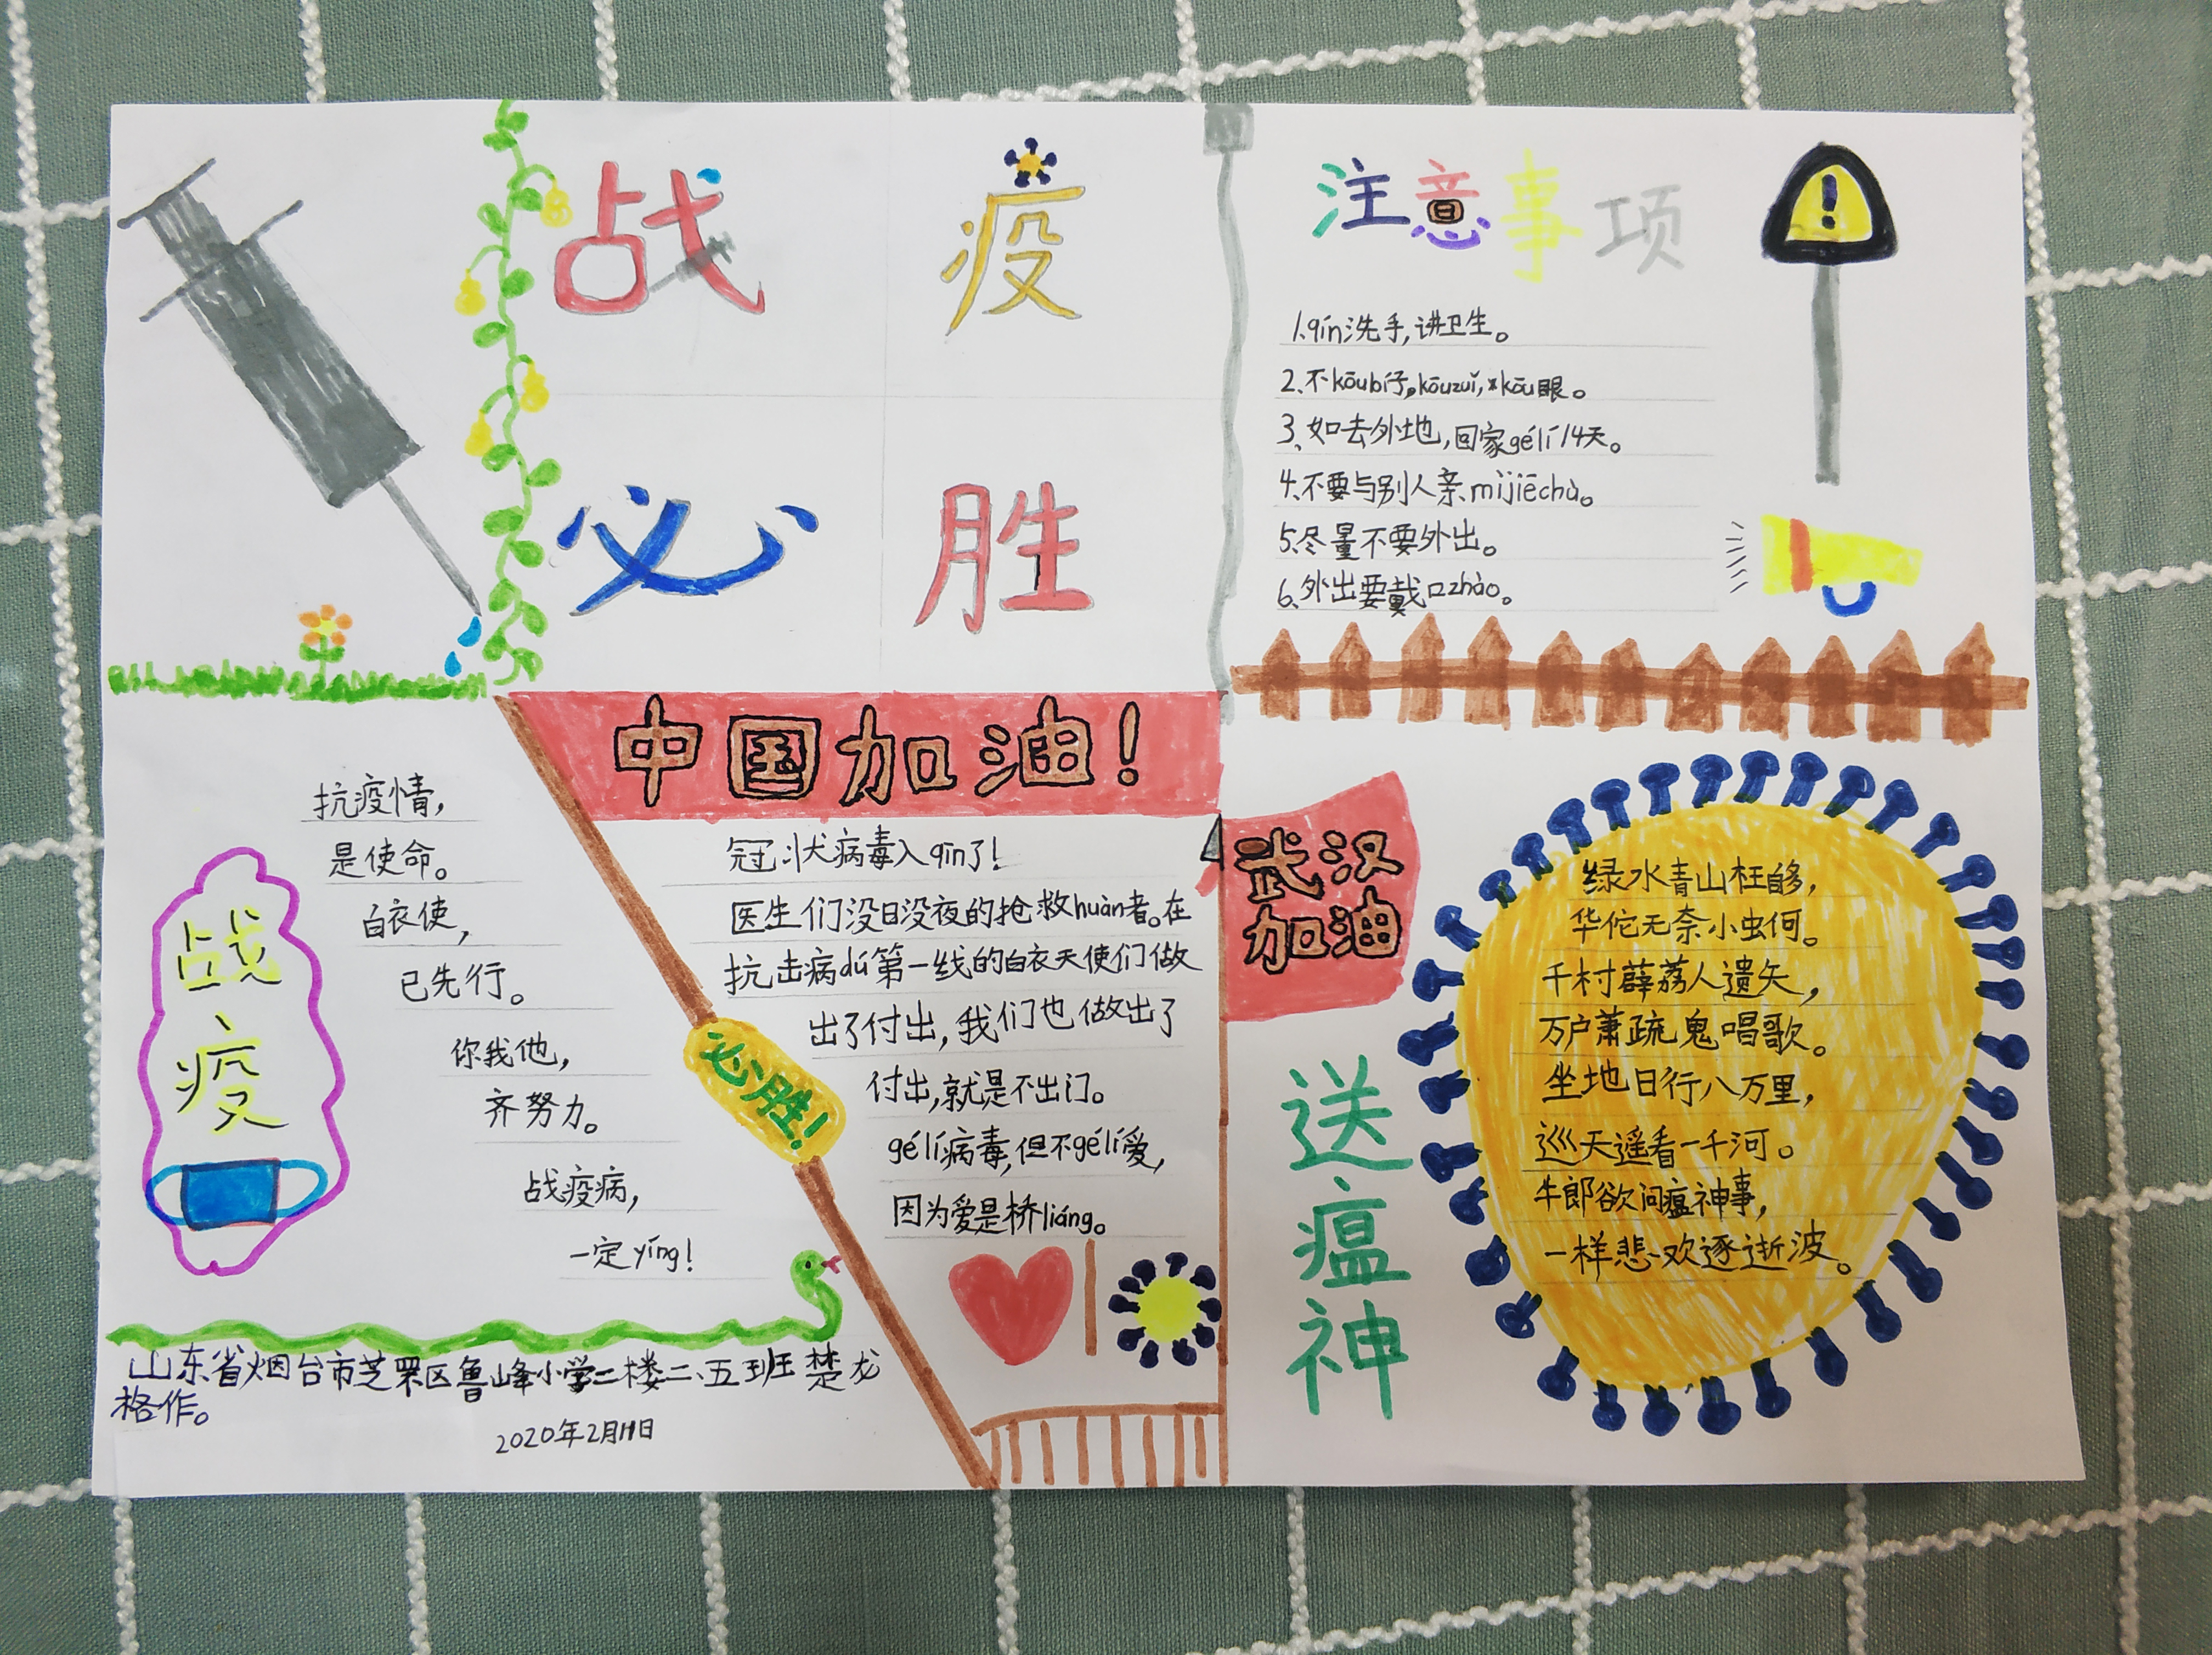 战疫
必胜
注意事项
1.qín洗手,讲卫生。
2.不kōubí子,kōuzuǐ,kōu眼。
3、如去外地,回家gélí14天。
4.不要与别人亲mìjiēchù。
5.尽量不要外出。
6.外出要戴口zhào。
中国加油!
抗疫情,
是使命。
白衣使,
已先行。
你我他,
齐努力。
战疫病,
一定yíng!
战
疫
必胜!
冠状病毒入qīn了!
医生们没日没夜的抢救huàn者。在
抗击病dú第一线的白衣天使们做
出了付出,我们也做出了
付出,就是不出门。
gélí病毒,但不gélí爱,
因为爱是桥liáng。
武汉
加油
送瘟神
绿水青山枉自多,
华佗无奈小虫何。
千村薜荔人遗矢,
万户萧疏鬼唱歌。
坐地日行八万里,
巡天遥看一千河。
牛郎欲问瘟神事,
一样悲欢逐逝波。
山东省烟台市芝罘区鲁峰小学二楼二、五班楚龙
格作。
2020年2月11日